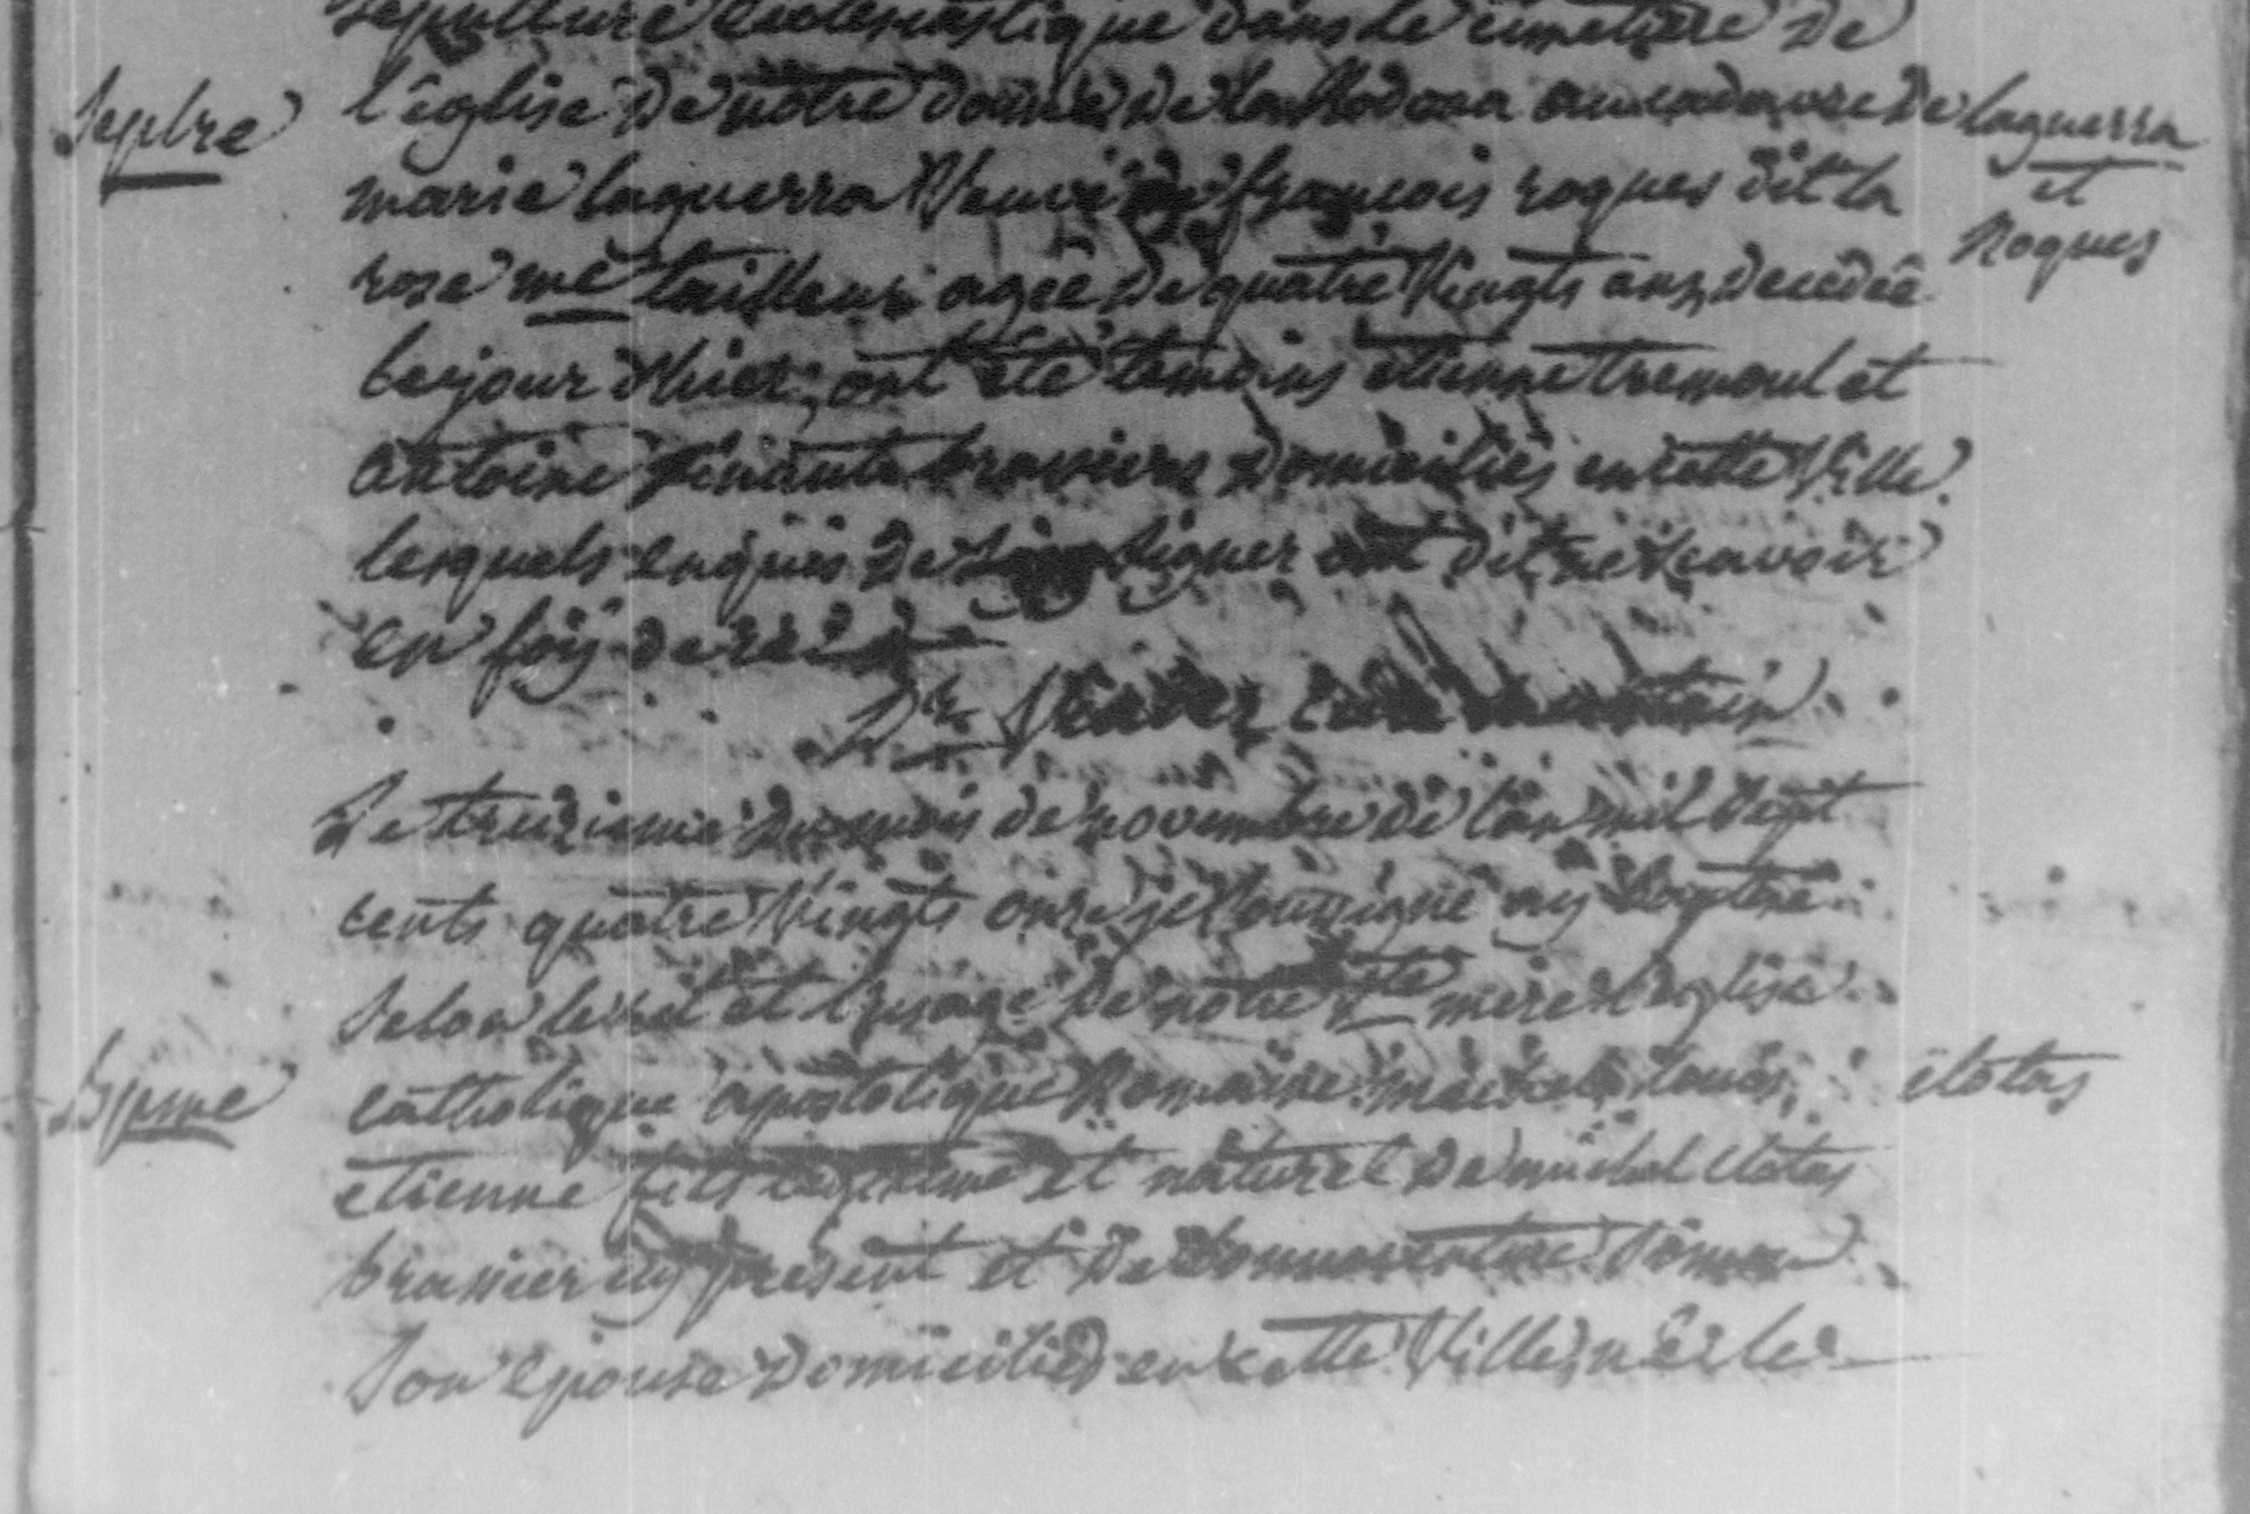 Sepulture Ecclesiastique dans le cimetiere de
Sepbre l'église de notre dame de la Rodona au cadavre de laguerra
marie laguerra Veuve de françois roques dit la et
rose me tailleur agée de quatre Vingts ans, decedée Roques
le jour d'hier, ont été temoins etienne tremoul et
antoine brassiers domiciliés en cette Ville
lesquels enquis de signer ont dit ne scavoir
en foy de ce
Le treizieme du mois de novembre de l'an mil sept
cents quatre Vingts onze je soussigné ay baptisé
Selon le rit et l'usage de notre ste mere l'eglise
Bpme catholique apostolique Romaine michel louis clotas
etienne fils legitime et naturel de michel clotas
brassier icy present et de bonnaventure
Son epouse domiciliés en cette Ville, né le